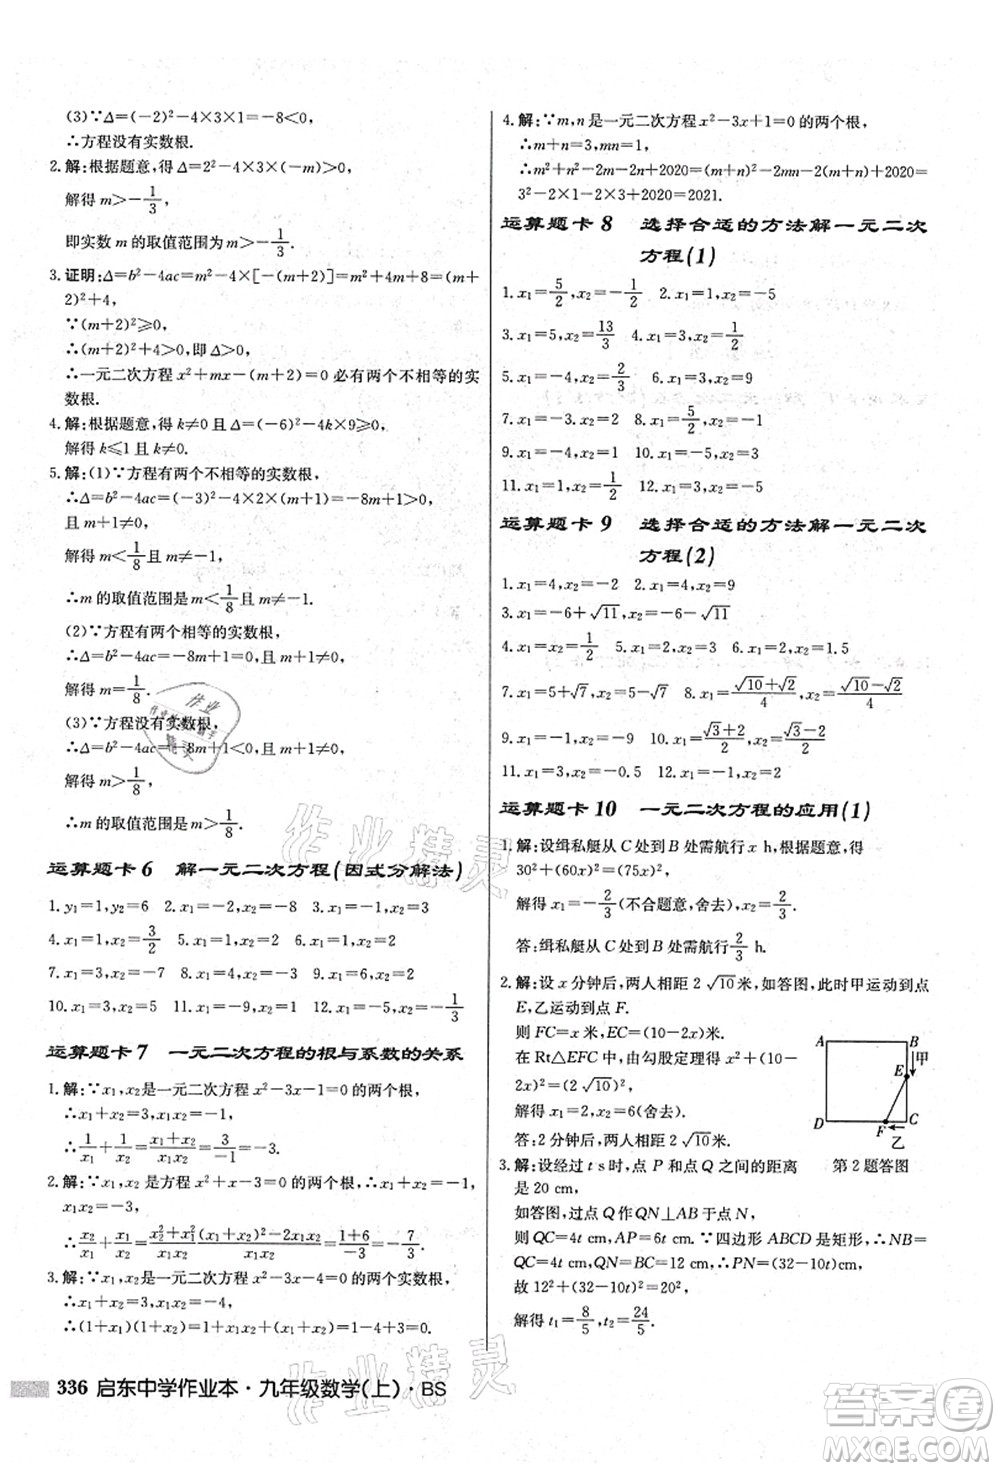 (3)∵Δ=(-2)²-4×3×1=-8<0,
∴方程没有实数根.
2. 解:根据题意,得 Δ=2²-4×3×(-m)>0,
解得 m>-1/3,
即实数 m 的取值范围为 m>-1/3.
3. 证明:Δ=b²-4ac=m²-4×[-(m+2)]=m²+4m+8=(m+
2)²+4,
∵(m+2)²≥0,
∴(m+2)²+4>0,即 Δ>0,
∴一元二次方程 x²+mx-(m+2)=0 必有两个不相等的实
数根.
4. 解:根据题意,得 k≠0 且 Δ=(-6)²-4k×9≥0,
解得 k≤1 且 k≠0.
5. 解:(1)∵方程有两个不相等的实数根,
∴Δ=b²-4ac=(-3)²-4×2×(m+1)=-8m+1>0,
且 m+1≠0,
解得 m<1/8 且 m≠-1,
∴m 的取值范围是 m<1/8 且 m≠-1.
(2)∵方程有两个相等的实数根,
∴Δ=b²-4ac=-8m+1=0,且 m+1≠0,
解得 m=1/8.
(3)∵方程没有实数根,
∴Δ=b²-4ac=-8m+1<0,且 m+1≠0,
解得 m>1/8,
∴m 的取值范围是 m>1/8.
运算题卡 6 解一元二次方程(因式分解法)
1. y₁=1,y₂=6 2. x₁=-2,x₂=-8 3. x₁=-1,x₂=3
4. x₁=1,x₂=3/2 5. x₁=2,x₂=1 6. x₁=1,x₂=2
7. x₁=-3,x₂=3 8. x₁=0,x₂=2 9. x₁=2,x₂=4
10. x₁=3,x₂=-6 11. x₁=-9,x₂=1 12. x₁=1,x₂=-1/3
运算题卡 7 一元二次方程的根与系数的关系
1. 解:∵x₁,x₂是一元二次方程 x²-3x-1=0 的两个根,
∴x₁+x₂=3,x₁x₂=-1,
∴1/x₁+1/x₂=(x₁+x₂)/(x₁x₂)=3/-1=-3.
2. 解:∵x₁,x₂是一元二次方程 x²+x-3=0 的两个根,
∴x₁+x₂=-1,x₁x₂=-3,
∴x₂/x₁+x₁/x₂=(x₂²+x₁²)/(x₁x₂)=((x₁+x₂)²-2x₁x₂)/(x₁x₂)=(1+6)/-3=-7/3.
3. 解:∵x₁,x₂是一元二次方程 x²-3x-4=0 的两个根,
∴x₁+x₂=3,x₁x₂=-4,
∴(1+x₁)(1+x₂)=1+(x₁+x₂)+x₁x₂=1+3-4=0.
336 启东中学作业本·九年级数学(上)·BS
4. 解:∵m,n 是一元二次方程 x²-3x+1=0 的两个根,
∴m+n=3,mn=1,
∴m²+n²-2m-2n+2020=(m+n)²-2mn-2(m+n)+2020=
3²-2×1-2×3+2020=2021.
运算题卡 8 选择合适的方法解一元二次
方程(1)
1. x₁=5/2,x₂=-1/2 2. x₁=1,x₂=-5
3. x₁=5,x₂=13/3 4. x₁=3,x₂=1/2
5. x₁=-4,x₂=2/3 6. x₁=3,x₂=9
7. x₁=-3,x₂=-2 8. x₁=2,x₂=4/5
9. x₁=-4,x₂=1 10. x₁=-5,x₂=3
11. x₁=-1,x₂=1/2 12. x₁=-4,x₂=5
运算题卡 9 选择合适的方法解一元二次
方程(2)
1. x₁=4,x₂=-2 2. x₁=4,x₂=9
3. x₁=-6+√11,x₂=-6-√11
4. x₁=0,x₂=1/2 5. x₁=-1,x₂=2 6. x₁=2,x₂=1.5
7. x₁=5+√7,x₂=5-√7 8. x₁=(√10+√2)/4,x₂=(√10-√2)/4
9. x₁=0,x₂=-1 10. x₁=(√3+√2)/2,x₂=(√3-√2)/2
11. x₁=3,x₂=-0.5 12. x₁=4,x₂=-1
运算题卡 10 一元二次方程的应用(1)
1. 解:设缉私艇从 C 处到 B 处需航行 x h,则
30²+(60x)²=(75x)²,
解得 x₁=-2/3(不合题意,舍去),x₂=2/3.
答:缉私艇从 C 处到 B 处需航行 2/3 h.
2. 解:设 x 分钟后,两人相距 2√10米,如答图,此时甲运动到点
E,乙运动到点 F.
则 FC=x 米,EC=(10-2x)米.
在 Rt△EFC 中,由勾股定理得 x²+(10-
2x)²=(2√10)²,
解得 x₁=2,x₂=6(舍去).
答:2 分钟后,两人相距 2√10米.
A B E 甲 D F C 乙
第 2 题答图
3. 解:设经过 t s 时,点 P 和点 Q 之间的距离
是 20 cm,
如答图,过点 Q 作 QN⊥AB 于点 N,
则 QC=4t cm,QN=12 cm.∵四边形 ABCD 是矩形,∴NB=
QC=4t cm,PB=(32-6t)cm,∴PN=(32-10t)cm,
故 12²+(32-10t)²=20²,
解得 t₁=8/5,t₂=24/5.
作业精灵
作业精灵
答案圈
MXQE.COM